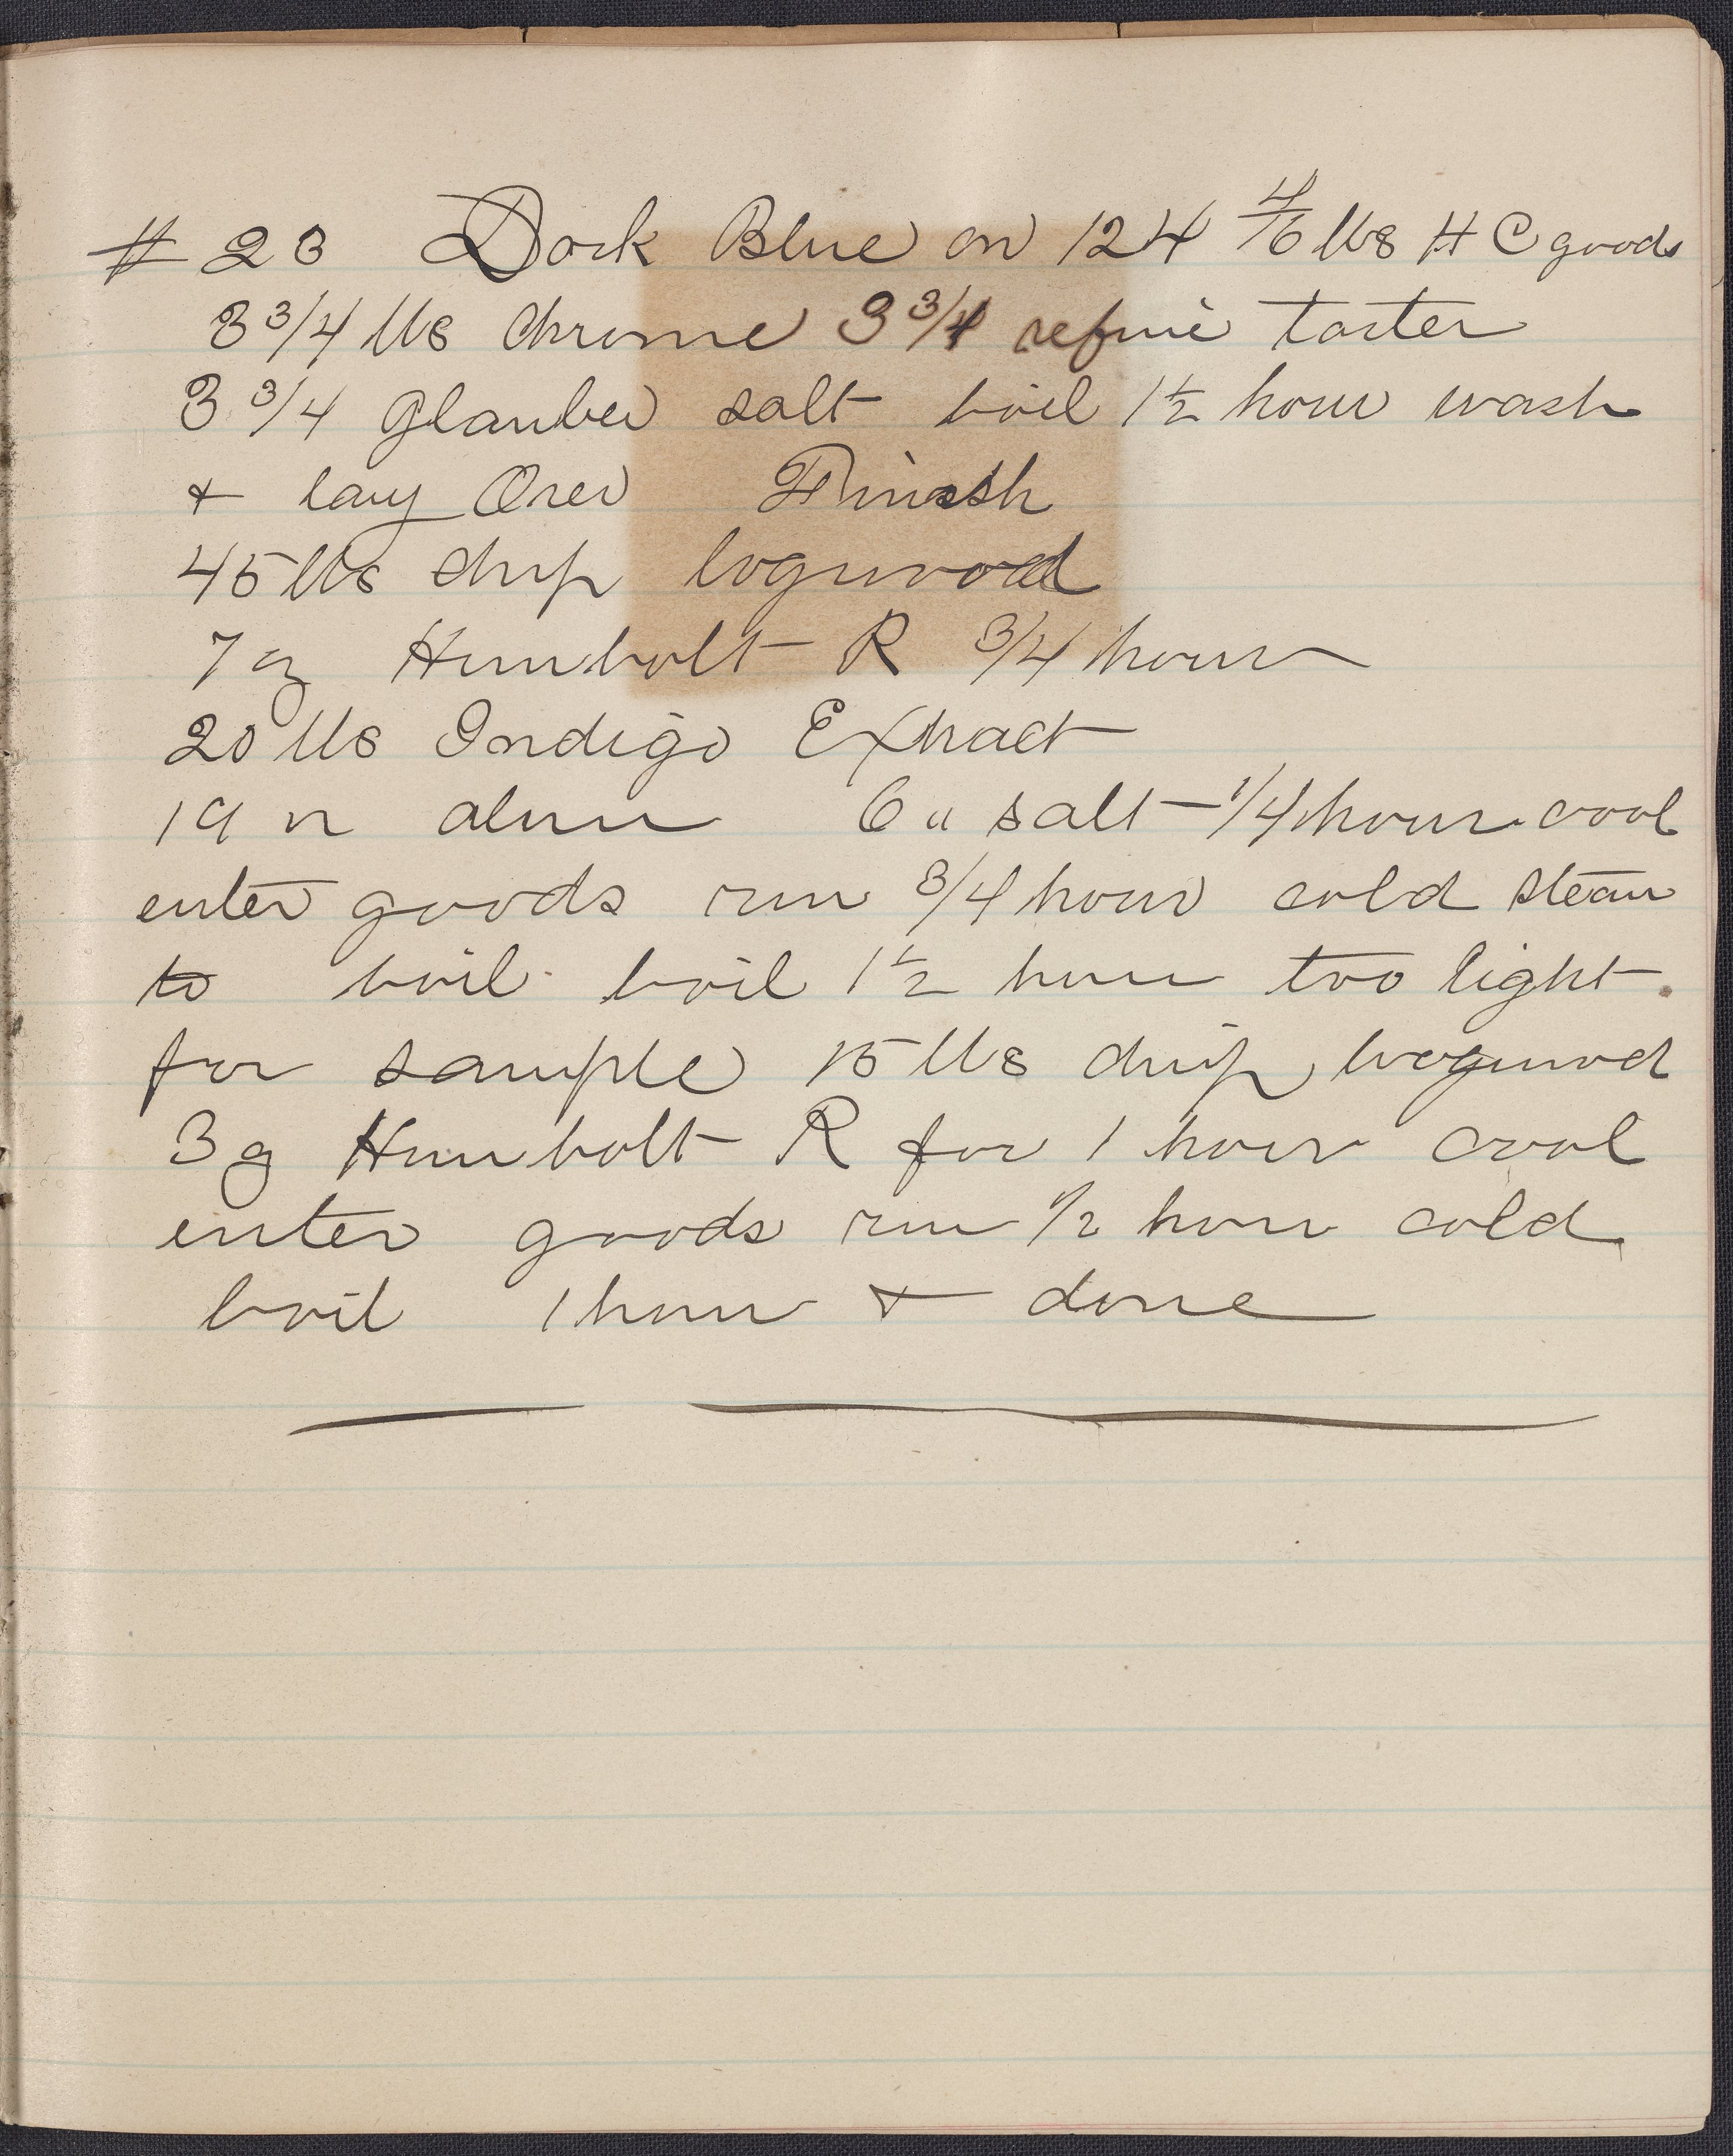 # 23 Dark Blue on 124 4/6 lbs H C goods
3 3/4 lbs Chrome 3 3/4 refine tarter
3 3/4 Glauber salt boil 1 1/2 hour wash
& lay Over Finish
45 lbs chip logwood
7 oz Humbolt R 3/4 hour
20 lbs Indigo Extract
19 " alum 6 " salt 1/4 hour cool
enter goods run 3/4 hour cold steam
to boil boil 1 1/2 hour too light
for sample 15 lbs chip logwood
3 oz Humbolt R for 1 hour cool
enter goods run 1/2 hour cold
boil 1 hour & done